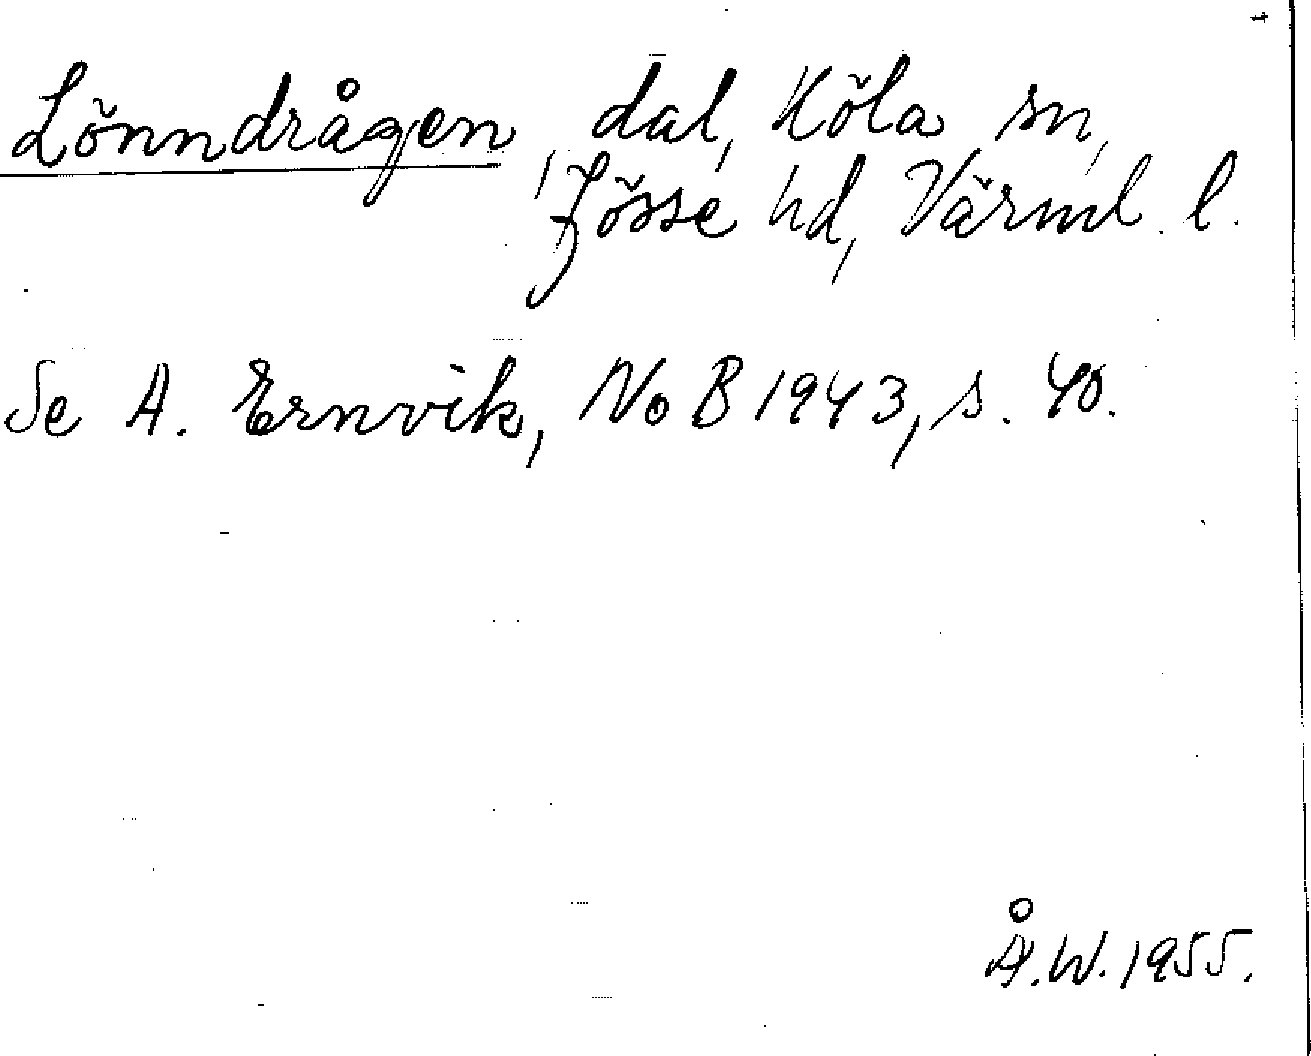 Lönndrågen, dal, Köla sn,
Jösse hd, Värml. l.
Se A. Ernvik, NoB 1943, s. 40.
Å.W. 1955.